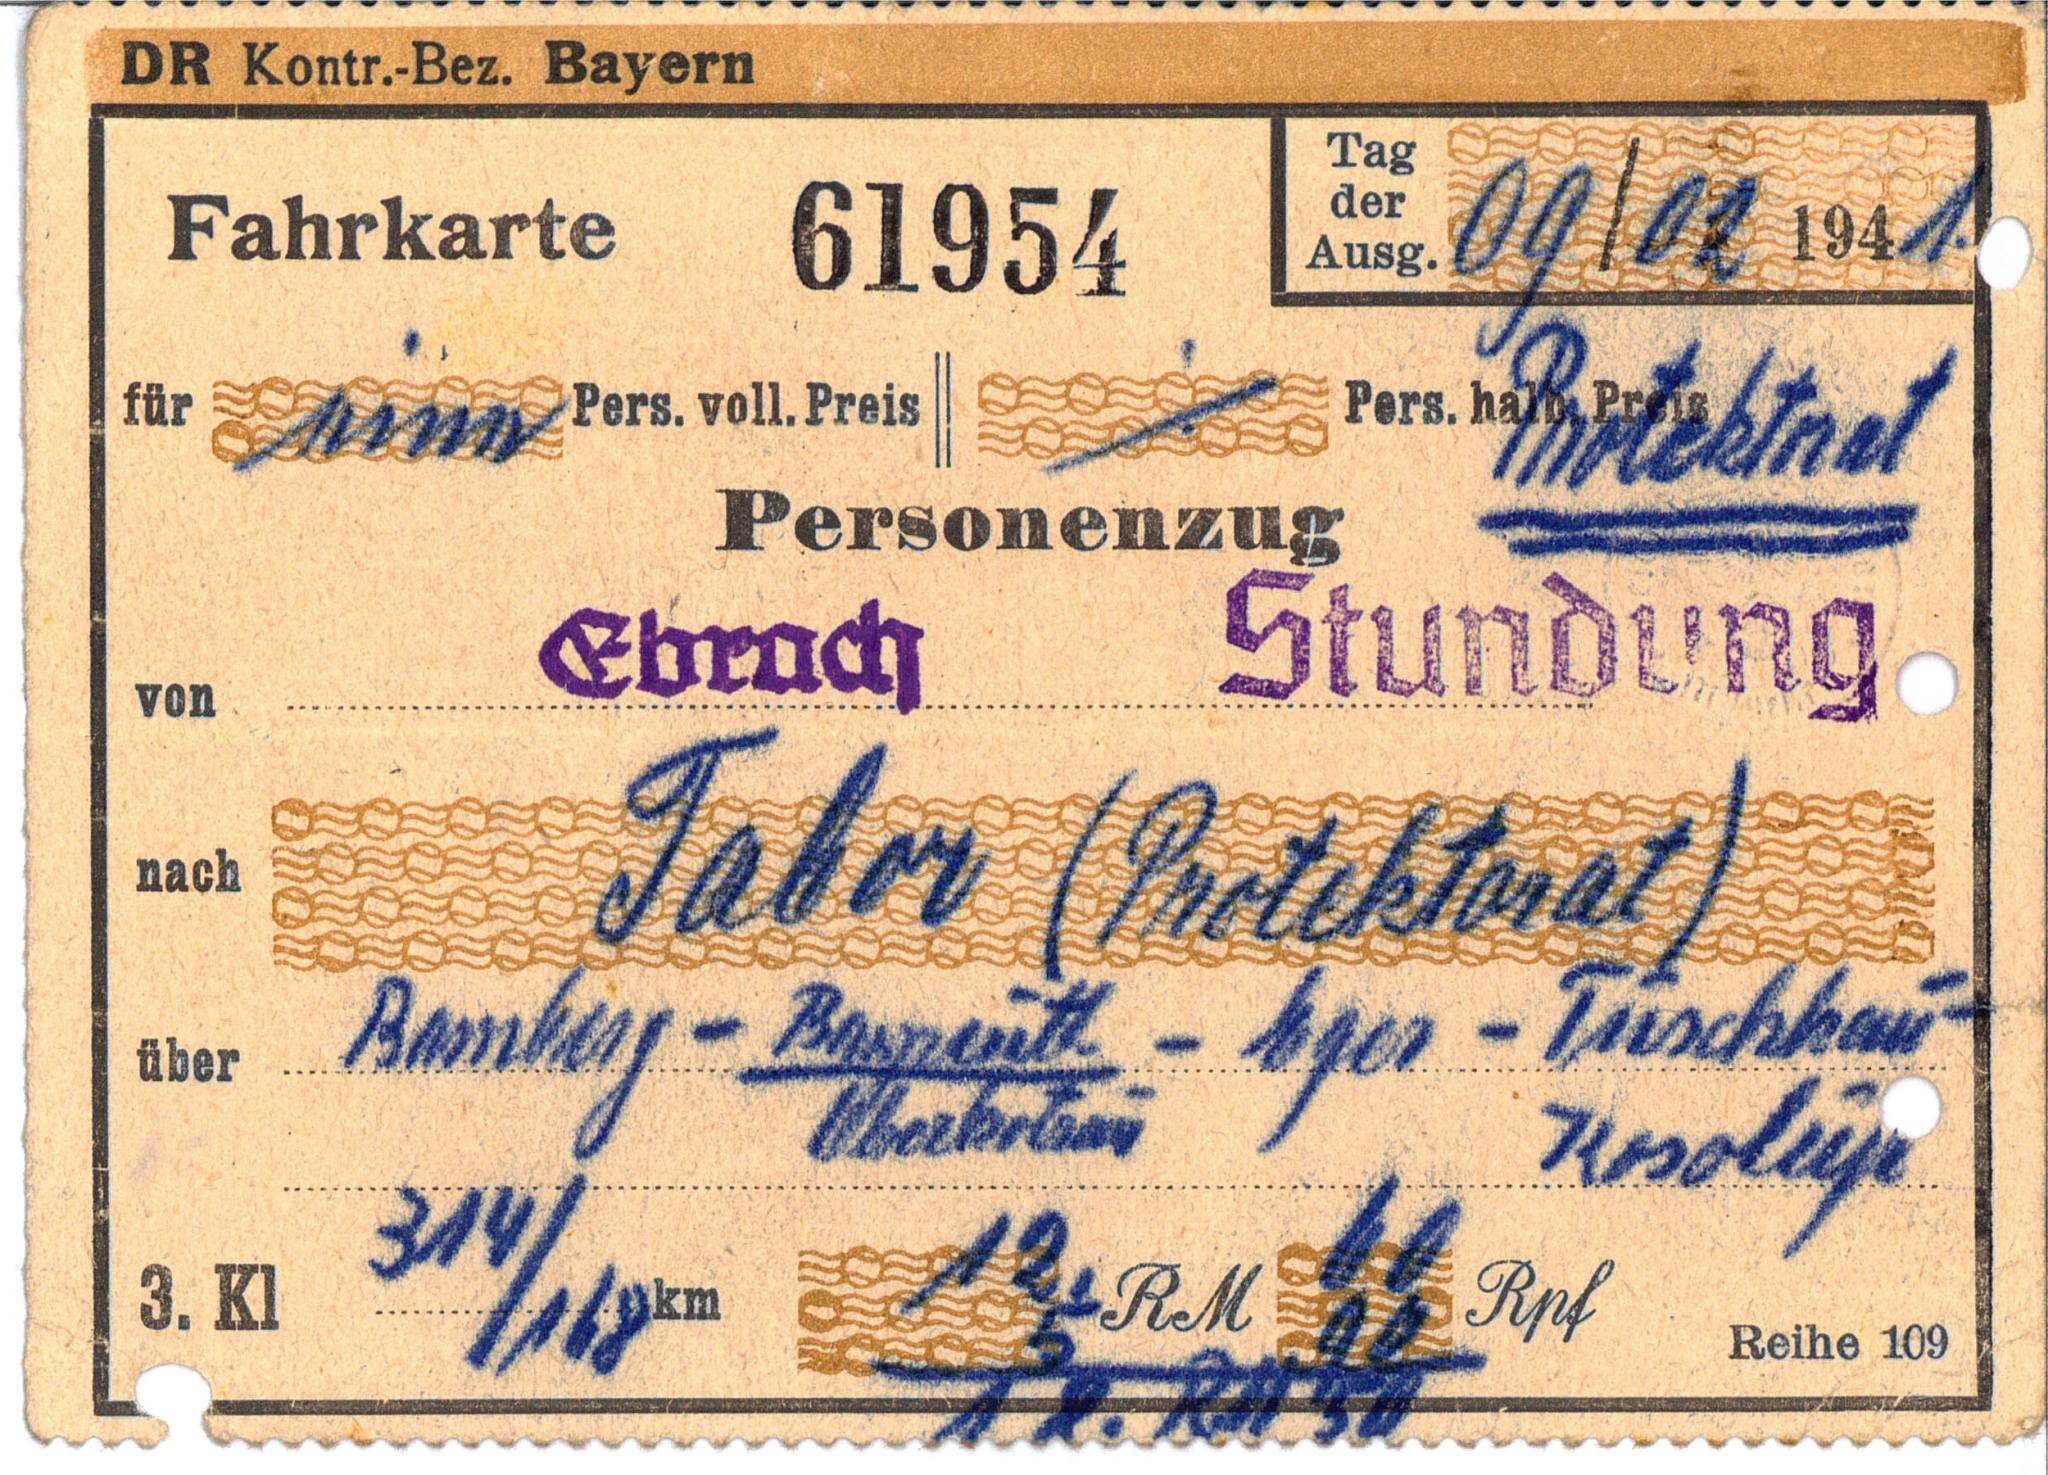 DR Kontr.-Bez. Bayern
Fahrkarte 61954
Tag der Ausg. 09/02 1941.
für ein Pers. voll. Preis Pers. halb. Preis
Protektorat
Personenzug
von Ebrach Stundung
nach Tabor (Protektorat)
über Bamberg - Bayreuth - Eger - Tuschkau-
Kosolup
314/168 km
3. Kl 12 RM 60 Rpf
Reihe 109